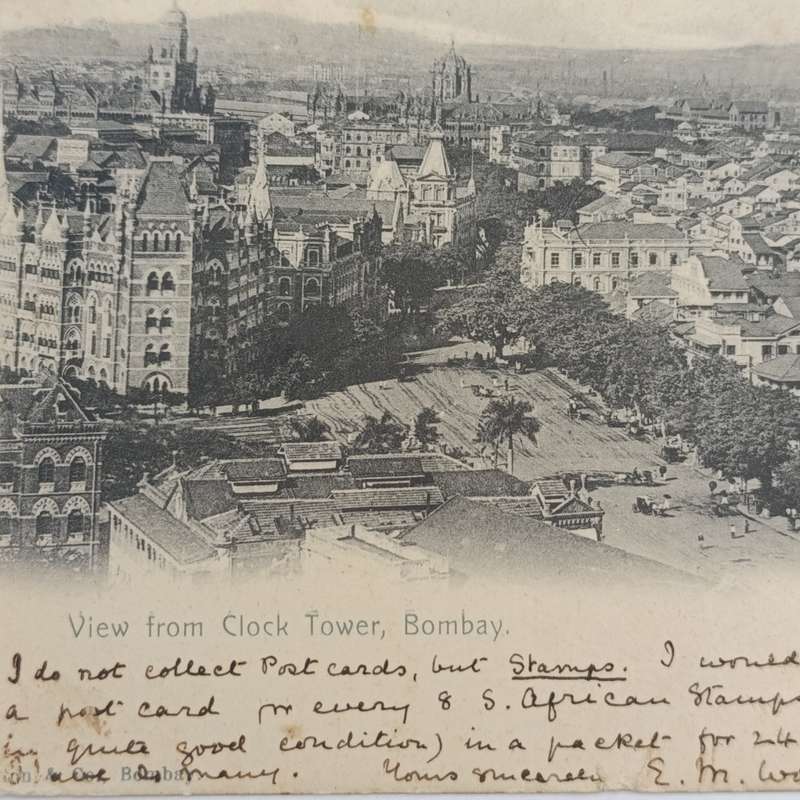 View from Clock Tower, Bombay.
I do not collect Post cards, but Stamps. I would
a post card for every 8 S. African Stamps
in quite good condition) in a packet for 24
many. Yours sincerely E. M.
& Co., Bombay